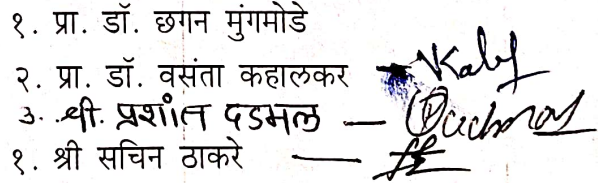 १. प्रा. डॉ. छगन मुंगमोडे
२. प्रा. डॉ. वसंता कहालकर
3. श्री. प्रशांत दडमल —
१. श्री सचिन ठाकरे —